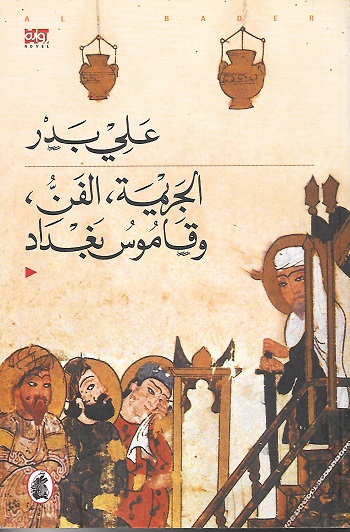 AL BADER
رواية
NOVEL
عَلِي بَدْر
الجَرِيمَة، الفَنُّ،
وقَامُوسُ بَغْدَاد